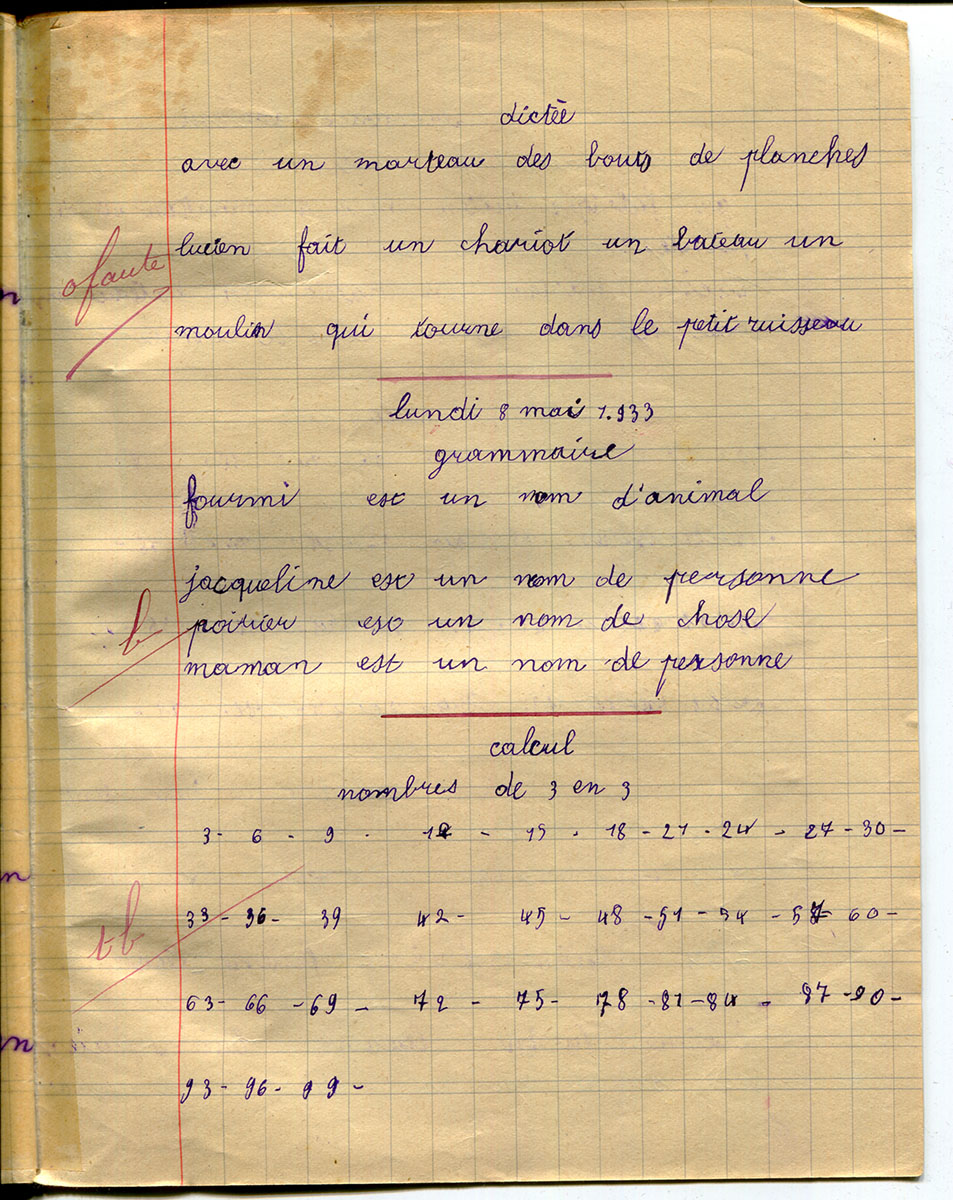 dictée
avec un marteau des bouts de planches
0 faute
lucien fait un chariot un bateau un
moulin qui tourne dans le petit ruisseau
lundi 8 mai 1.933
grammaire
fourmi est un nom d'animal
jacqueline est un nom de personne
b
poirier est un nom de chose
maman est un nom de personne
calcul
nombres de 3 en 3
3 - 6 - 9 - 12 - 15 - 18 - 21 - 24 - 27 - 30 -
tb
33 - 36 - 39 42 - 45 - 48 - 51 - 54 - 57 - 60 -
63 - 66 - 69 - 72 - 75 - 78 - 81 - 84 - 87 - 90 -
93 - 96 - 99 -